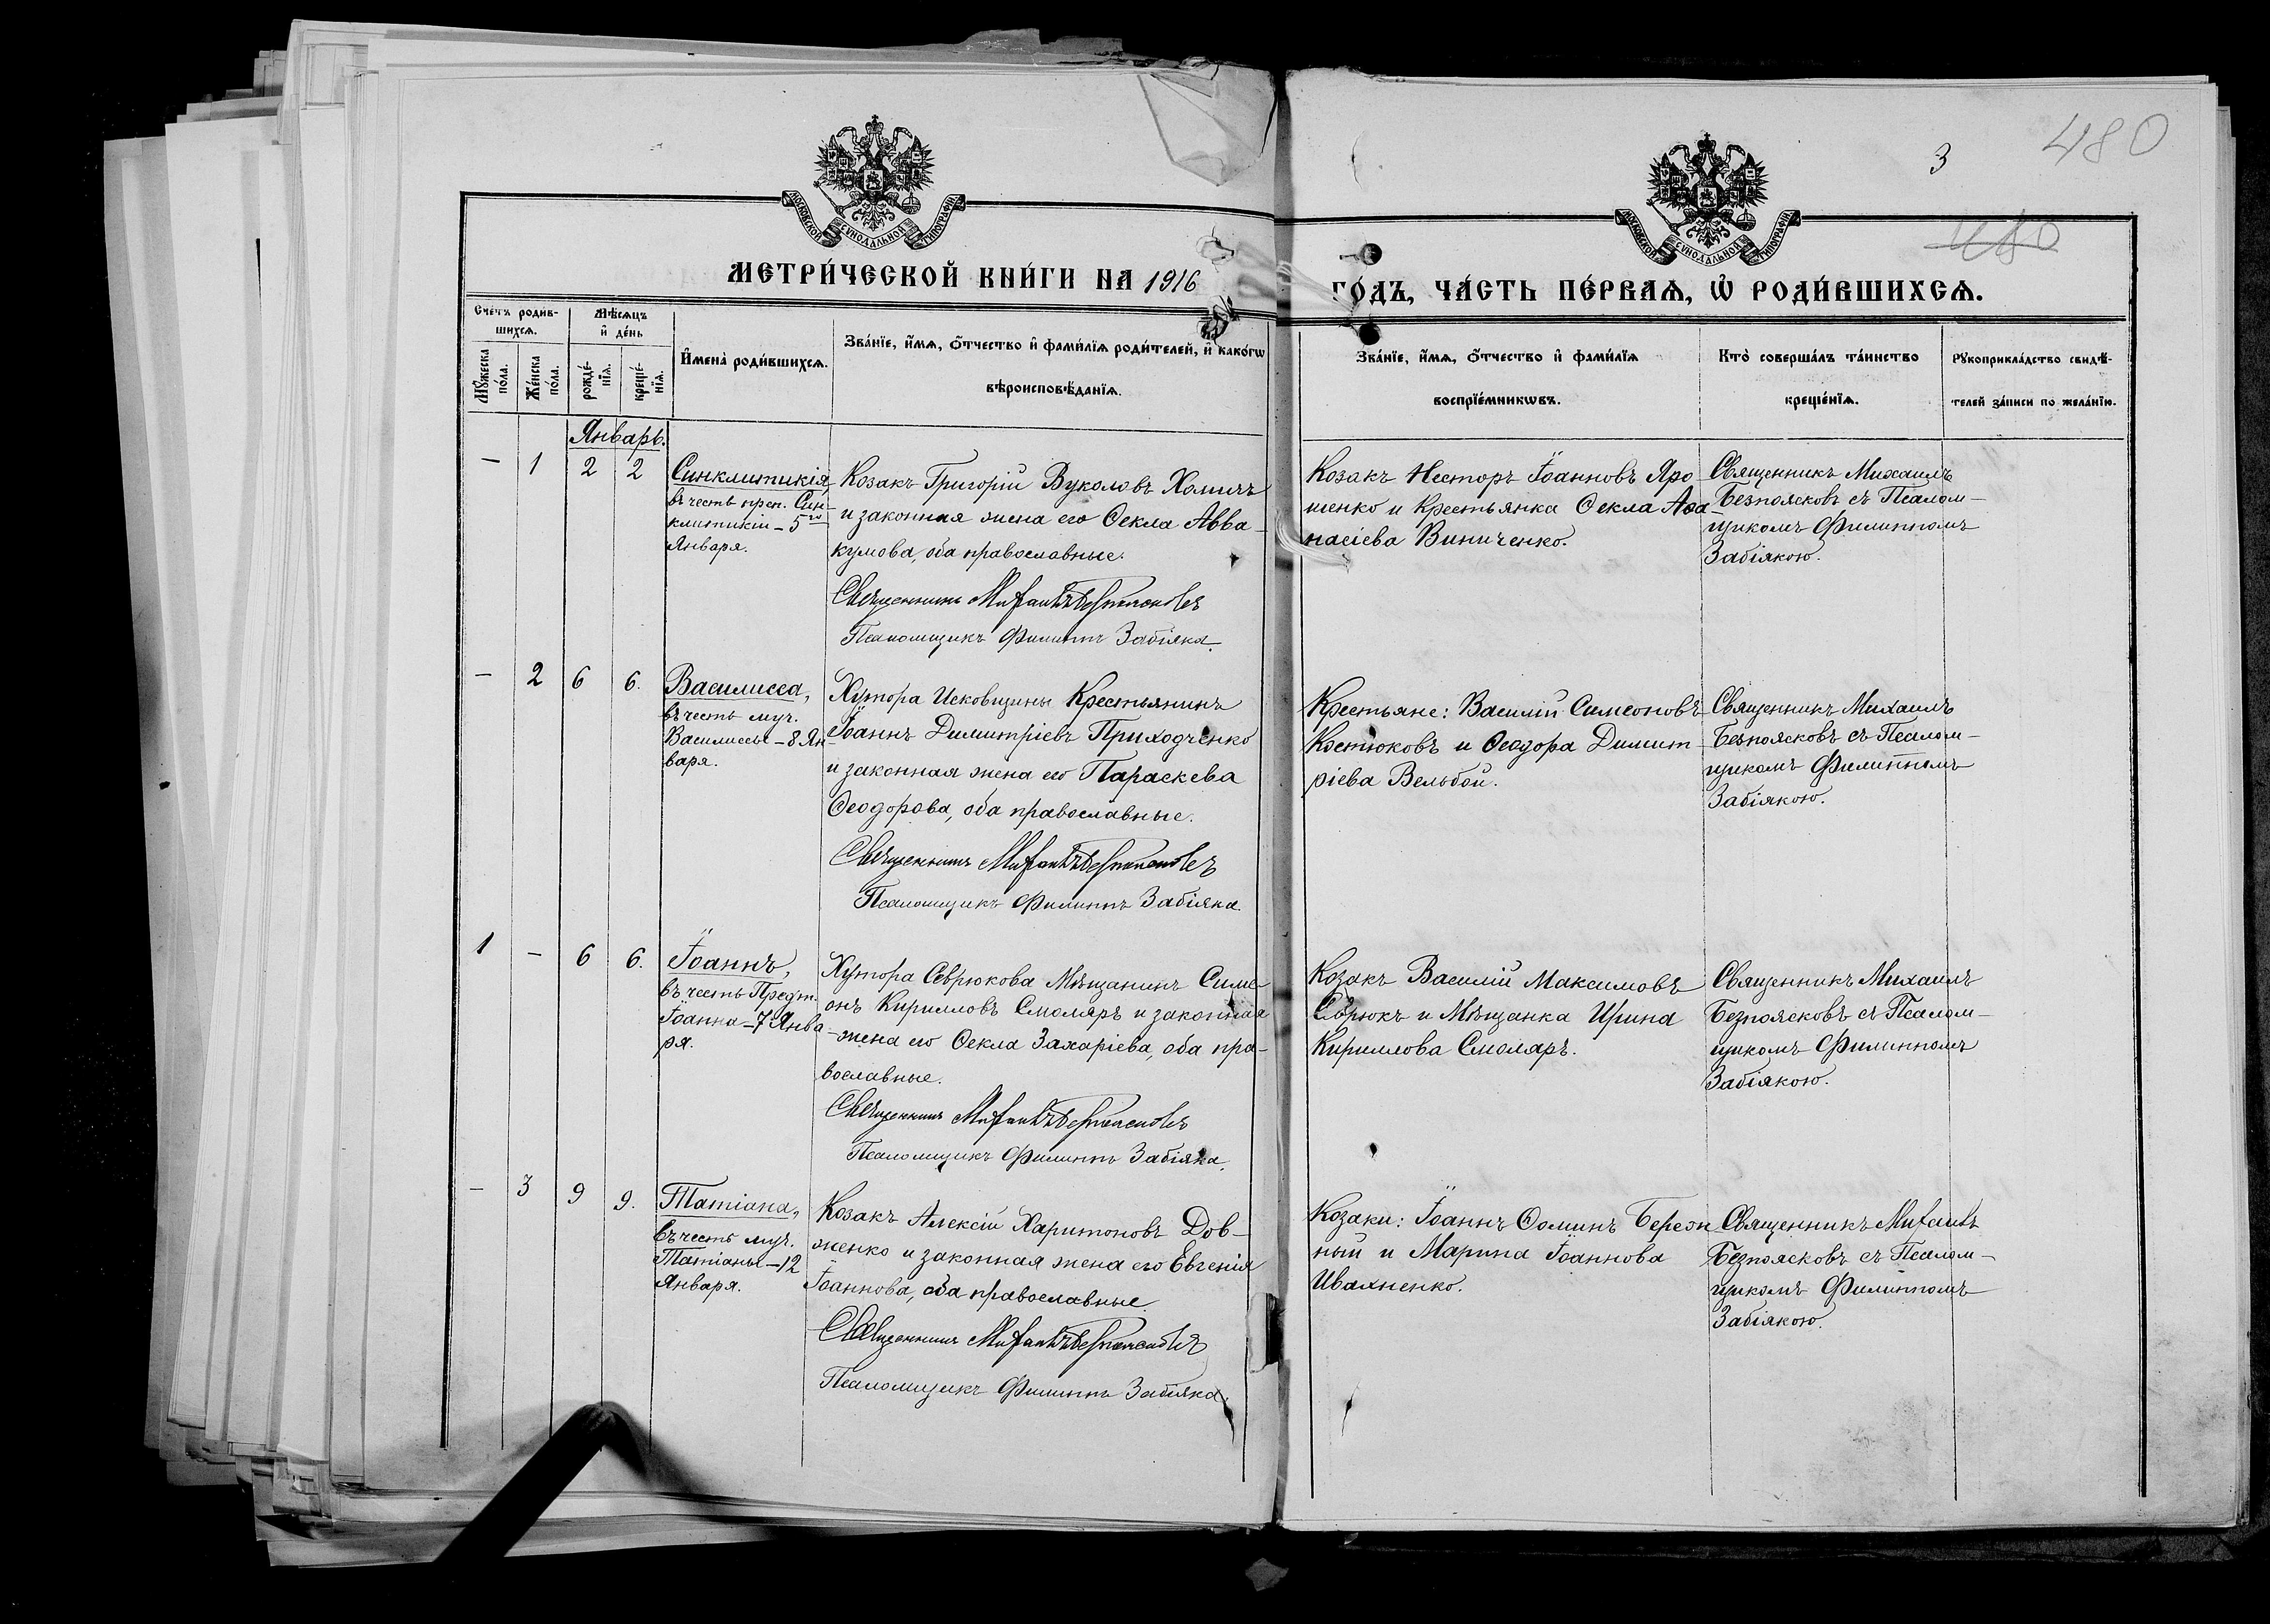 480
3
480
МОСКОВСКОЙ СѴНОДАЛЬНОЙ ТИПОГРАФІИ
МОСКОВСКОЙ СѴНОДАЛЬНОЙ ТИПОГРАФІИ
МЕТРИ́ЧЕСКОЙ КНИ́ГИ НА 1916
ГО́ДЪ, ЧА́СТЬ ПЕ́РВАѦ, Ѡ҆ РОДИ́ВШИХСѦ.
Сче́тъ роди́в-
шихсѧ.
Мꙋ́жеска по́ла.
Же́нска по́ла.
Мѣ́сѧцъ
и҆ де́нь
рожде́-
нїѧ.
креще́-
нїѧ.
И҆мена̀ роди́вшихсѧ.
Зва́нїе, и҆́мѧ, ѻ҆́тчество и҆ фами́лїѧ роди́телей, и҆ како́гѡ
вѣроисповѣ́данїѧ.
Зва́нїе, и҆́мѧ, ѻ҆́тчество и҆ фами́лїѧ
воспрїе́мникѡвъ.
Кто̀ соверша́лъ та́инство
креще́нїѧ.
Рꙋкоприкла́дство свидѣ́-
телей за́писи по жела́нїю.
Январь.
— 1 2 2
Синклитикія,
въ честь преп. Син-
клитикіи – 5го
Января.
Козакъ Григорій Вуколовъ Хомичъ
и законная жена его Ѳекла Авва-
кумова, оба православные.
Священникъ Михаилъ Безпоясковъ
Псаломщикъ Филиппъ Забіяка.
Козакъ Несторъ Іоанновъ Яро-
шенко и Крестьянка Ѳекла Аѳа-
насіева Виниченко.
Священникъ Михаилъ
Безпоясковъ съ Псалом-
щикомъ Филиппомъ
Забіякою.
— 2 6 6.
Василисса,
въ честь муч.
Василиссы – 8 Ян-
варя.
Хутора Исковщины Крестьянинъ
Іоаннъ Димитріевъ Приходченко
и законная жена его Параскева
Ѳеодорова, оба православные.
Священникъ Михаилъ Безпоясковъ
Псаломщикъ Филиппъ Забіяка.
Крестьяне: Василій Симеоновъ
Костюковъ и Ѳеодора Димит-
ріева Вельбой.
Священникъ Михаилъ
Безпоясковъ съ Псалом-
щикомъ Филиппомъ
Забіякою.
1 — 6 6.
Іоаннъ,
въ честь Предт.
Іоанна – 7 Янва-
ря.
Хутора Сѣврюкова Мѣщанинъ Симе-
онъ Кирилловъ Смоляръ и законная
жена его Ѳекла Захаріева, оба пра-
вославные.
Священникъ Михаилъ Безпоясковъ
Псаломщикъ Филиппъ Забіяка.
Козакъ Василій Максимовъ
Сѣврюкъ и Мѣщанка Ирина
Кириллова Смоляръ.
Священникъ Михаилъ
Безпоясковъ съ Псалом-
щикомъ Филиппомъ
Забіякою.
— 3 9 9.
Татіана,
въ честь муч.
Татіаны – 12
Января.
Козакъ Алексій Харитоновъ Дов-
женко и законная жена его Евгенія
Іоаннова, оба православные.
Священникъ Михаилъ Безпоясковъ
Псаломщикъ Филиппъ Забіяка.
Козаки: Іоаннъ Ѳоминъ Береж-
ный и Марина Іоаннова
Ивахненко.
Священникъ Михаилъ
Безпоясковъ съ Псалом-
щикомъ Филиппомъ
Забіякою.